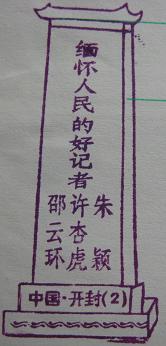 缅怀人民的好记者
邵云环
许杏虎
朱颖
中国·开封(2)